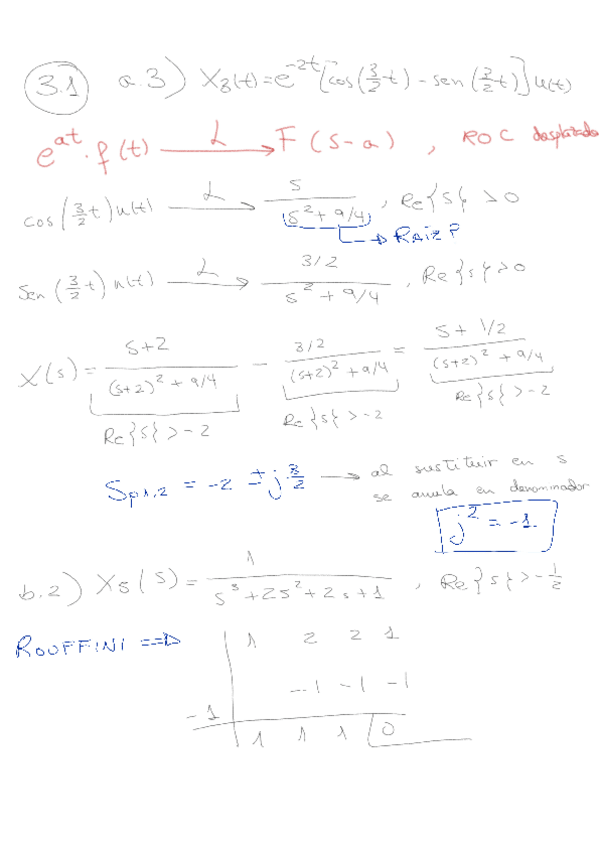 3.1 a.3) X₃(t) = e^{-2t} [cos(3/2 t) - sen(3/2 t)] u(t)
e^{at} · f(t) —L→ F(s-a) , ROC desplazado
cos(3/2 t) u(t) —L→ s / (s² + 9/4) , Re{s} > 0
→ RAÍZ?
sen(3/2 t) u(t) —L→ 3/2 / (s² + 9/4) , Re{s} > 0
X(s) = (s+2) / ((s+2)² + 9/4) - (3/2) / ((s+2)² + 9/4) = (s + 1/2) / ((s+2)² + 9/4)
Re{s} > -2 Re{s} > -2 Re{s} > -2
Sp1,2 = -2 ± j·3/2 → al sustituir en s
se anula en denominador
j² = -1
b.2) X₅(s) = 1 / (s³ + 2s² + 2s + 1) , Re{s} > -1/2
ROUFFINI ==> 1 2 2 1
-1 -1 -1
-1
1 1 1 0